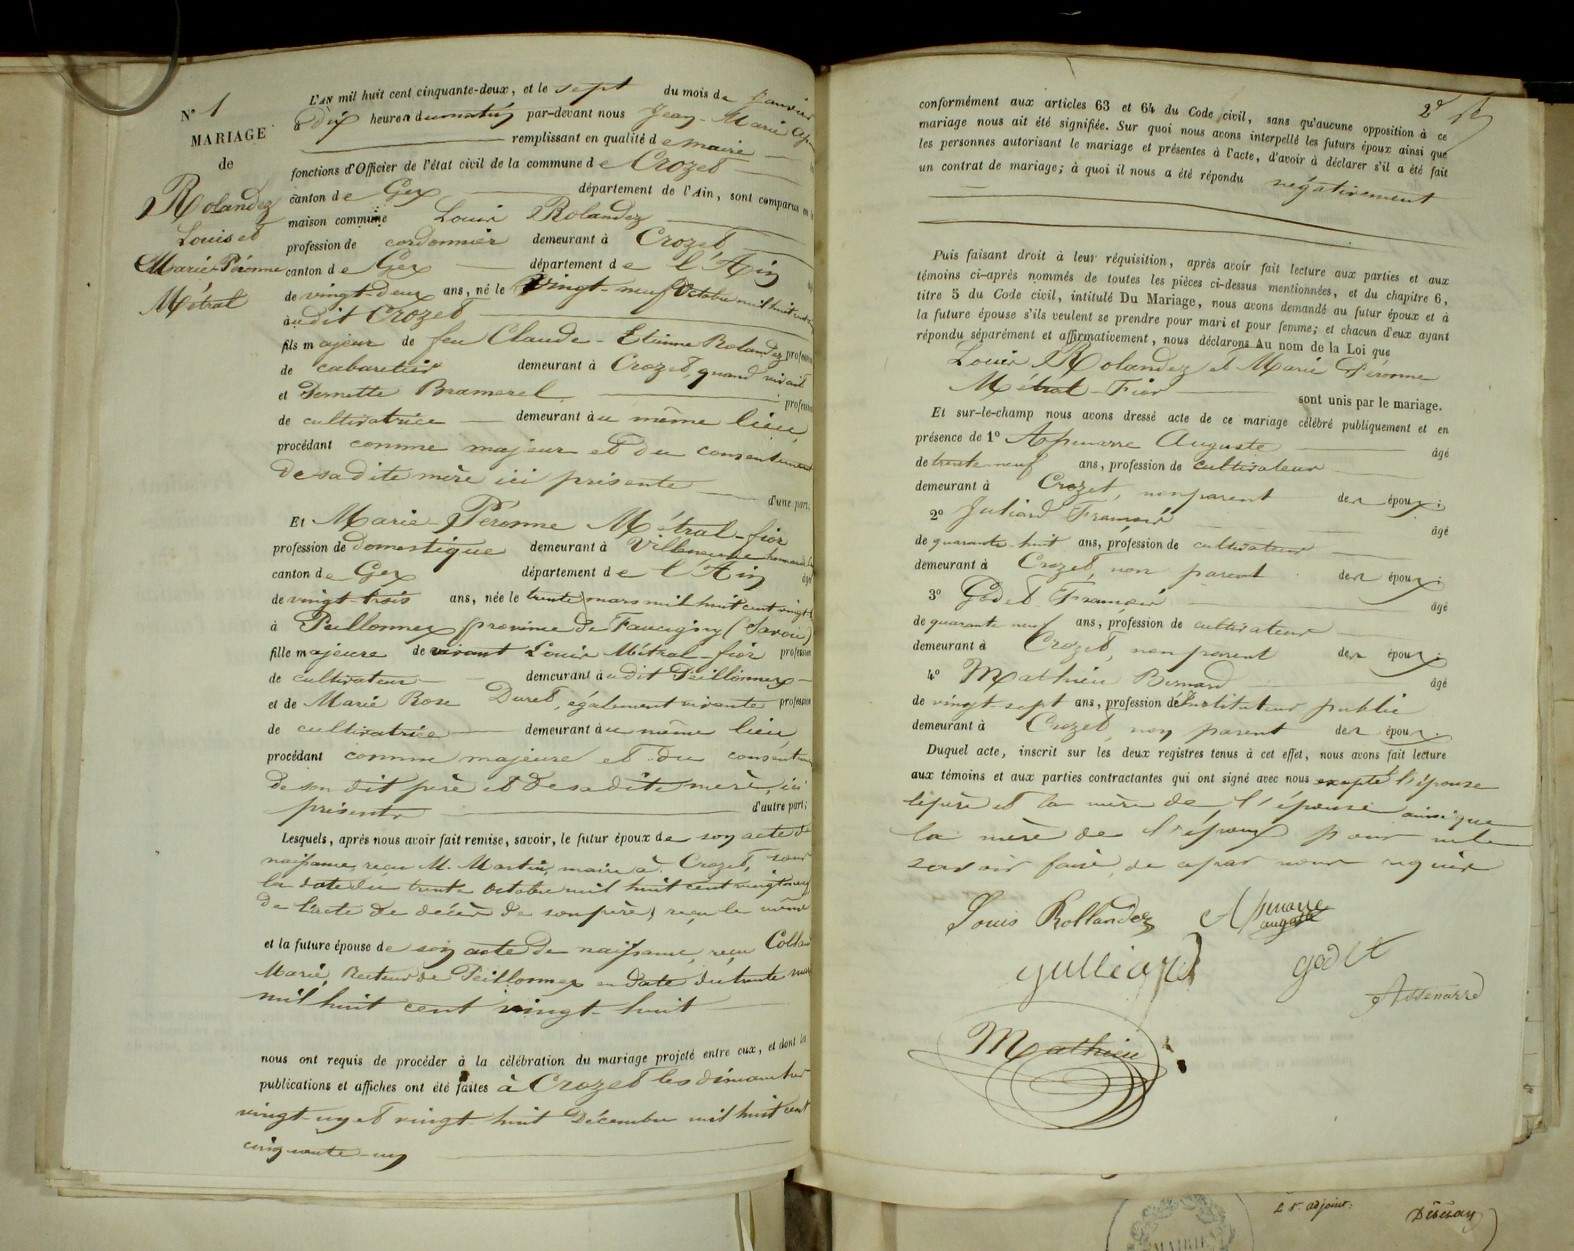 N° 1
MARIAGE
de
Rolandez
Louis et
Marie Péronne
Métral
L'AN mil huit cent cinquante-deux, et le sept du mois de Janvier
à dix heures du matin par-devant nous Jean-Marie
remplissant en qualité de maire
fonctions d'Officier de l'état civil de la commune de Crozet
canton de Gex département de l'Ain, sont comparus en
maison commune Louis Rolandez
profession de cordonnier demeurant à Crozet
canton de Gex département de l'Ain
de vingt-deux ans, né le vingt-neuf Octobre mil huit cent
audit Crozet
fils majeur de feu Claude-Etienne Rolandez profession
de cabaretier demeurant à Crozet, quand vivait
et Pernette Bramerel profession
de cultivatrice demeurant au même lieu,
procédant comme majeur et du consentement
de sa dite mère ici présente d'une part;
Et Marie-Péronne Métral-fior
profession de domestique demeurant à
canton de Gex département de l'Ain âgé
de vingt-trois ans, née le trente mars mil huit cent vingt
à Peillonnex province de Faucigny (Savoie)
fille majeure de vivant Louis Métral-fior profession
de cultivateur demeurant audit Peillonnex
et de Marie Rose Duret, également vivante profession
de cultivatrice demeurant au même lieu,
procédant comme majeure et du consentement
de son dit père et de sa dite mère, ici
présents d'autre part;
Lesquels, après nous avoir fait remise, savoir, le futur époux de son acte de
naissance, reçu M. Martin, maire à Crozet, sous
la date du trente octobre mil huit cent vingt neuf
de l'acte de décès de son père, reçu le même
et la future épouse de son acte de naissance, reçu
Marie, Recteur de Peillonnex en date du trente mars
mil huit cent vingt-huit
nous ont requis de procéder à la célébration du mariage projeté entre eux, et dont la
publications et affiches ont été faites à Crozet les dimanches
vingt-un et vingt-huit Décembre mil huit cent
cinquante-un
2e
conformément aux articles 63 et 64 du Code civil, sans qu'aucune opposition à ce
mariage nous ait été signifiée. Sur quoi nous avons interpellé les futurs époux ainsi que
les personnes autorisant le mariage et présentes à l'acte, d'avoir à déclarer s'il a été fait
un contrat de mariage; à quoi il nous a été répondu négativement
Puis faisant droit à leur réquisition, après avoir fait lecture aux parties et aux
témoins ci-après nommés de toutes les pièces ci-dessus mentionnées, et du chapitre 6,
titre 5 du Code civil, intitulé Du Mariage, nous avons demandé au futur époux et à
la future épouse s'ils veulent se prendre pour mari et pour femme; et chacun d'eux ayant
répondu séparément et affirmativement, nous déclarons Au nom de la Loi que
Louis Rolandez et Marie Péronne
Métral-Fior sont unis par le mariage.
Et sur-le-champ nous avons dressé acte de ce mariage célébré publiquement et en
présence de 1° Apenarre Auguste âgé
de trente-neuf ans, profession de cultivateur
demeurant à Crozet, non parent des époux;
2° Juliard François âgé
de quarante-huit ans, profession de cultivateur
demeurant à Crozet, non parent des époux;
3° Godet François âgé
de quarante neuf ans, profession de cultivateur
demeurant à Crozet, non parent des époux;
4° Mathieu Bernard âgé
de vingt-sept ans, profession de Instituteur public
demeurant à Crozet, non parent des époux.
Duquel acte, inscrit sur les deux registres tenus à cet effet, nous avons fait lecture
aux témoins et aux parties contractantes qui ont signé avec nous excepté l'épouse
le père et la mère de l'épouse ainsi que
la mère de l'époux pour ne le
savoir faire, de ce par nous requis
Louis Rollandez
auguste
Julliard
godet
Mathieu
MAIRIE